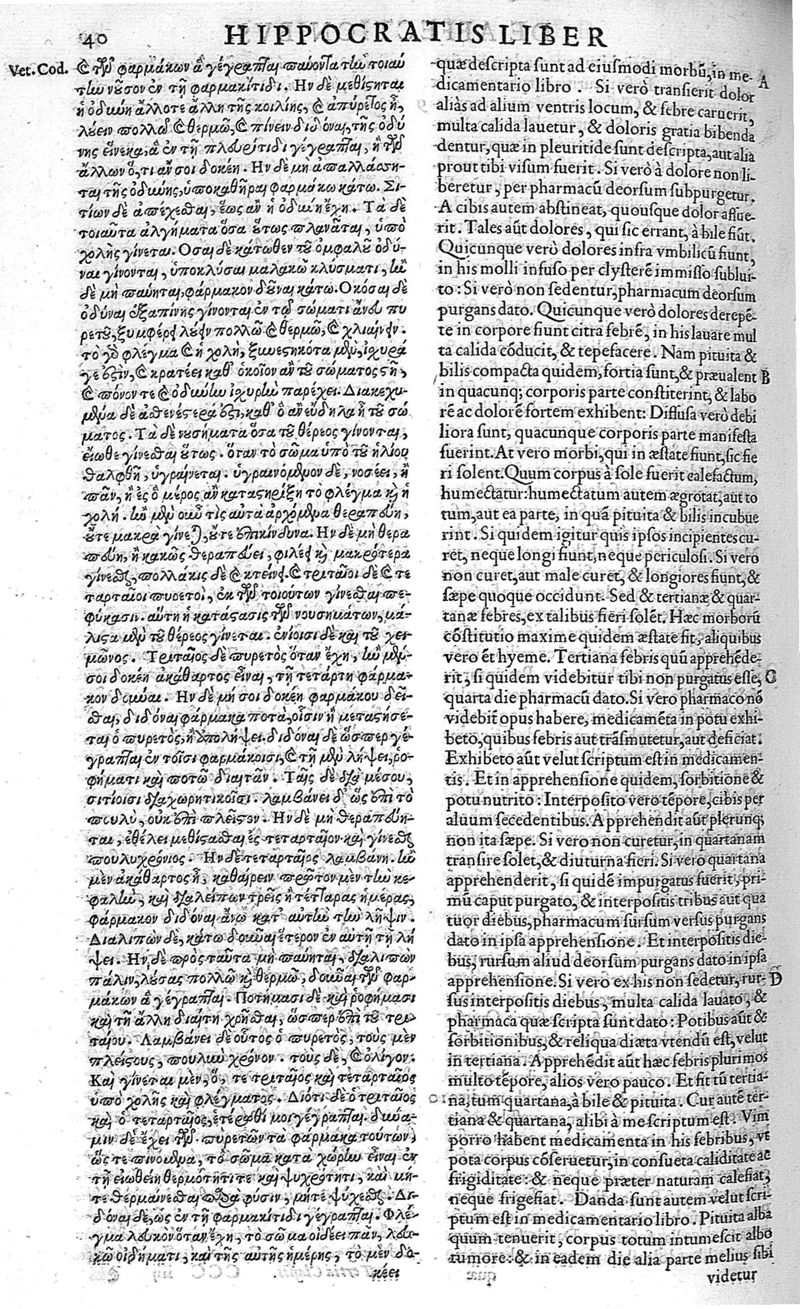 40 HIPPOCRATIS LIBER
Vet. Cod.
& τῶν φαρμάκων ἃ γέγραπται παύοντα τὴν τοιαύ
την νοῦσον ἐν τῇ φαρμακίτιδι. Ην δὲ μεθίστηται
ἡ ὀδύνη ἄλλοτε ἄλλη τῆς κοιλίης, & ἀπύρετος ᾖ,
λούειν πολλῷ & θερμῷ, & πίνειν διδόναι, τῆς ὀδύ
νης εἵνεκα, ἃ ἐν τῇ πλευρίτιδι γέγραπται, ἢ
ἄλλων ὅ, τι ἄν σοι δοκέῃ. Ην δὲ μὴ ἀπαλλάσση-
ται τῆς ὀδύνης, ὑποκαθῆραι φαρμάκῳ κάτω. Σι-
τίων δὲ ἀπέχεσθαι, ἕως ἂν ἡ ὀδύνη ἔχῃ. Τὰ δὲ
τοιαῦτα ἀλγήματα ὅσα οὕτως πλανᾶται, ὑπὸ
χολῆς γίνεται. Οσαι δὲ κάτωθεν τοῦ ὀμφαλοῦ ὀδύ-
ναι γίνονται, ὑποκλύσαι μαλακῷ κλύσματι, ἢν
δὲ μὴ παύηται, φάρμακον δοῦναι κάτω. Οκόσαι δὲ
ὀδύναι ἐξαπίνης γίνονται ἐν τῷ σώματι ἄνευ πυ
ρετοῦ, ξυμφέρει λούειν πολλῷ & θερμῷ, & χλιαίνειν.
τὸ γὸ φλέγμα & ἡ χολή, ξυνεστηκότα μὲν, ἰσχυρά
γέ ἐστιν, & κρατέει καθ' ὁκοῖον ἂν τοῦ σώματος στῇ,
& πόνον τε & ὀδύνην ἰσχυρὴν παρέχει. Διακεχυ-
μένα δὲ ἀσθενέστερά ἐστι, καθ' ὃ ἂν εὔδηλα ᾖ τοῦ σώ
ματος. Τὰ δὲ νουσήματα ὅσα τοῦ θέρεος γίνονται,
ἔωθε γίνεσθαι οὕτως. ὅταν τὸ σῶμα ὑπὸ τοῦ ἡλίου
θαλφθῇ, ὑγραίνεται. ὑγραινόμενον δὲ, νοσέει, ἢ
πᾶν, ἢ ἐς ὃ μέρος ἂν καταστηρίξῃ τὸ φλέγμα κỳ ἡ
χολή. ἢν μὲν οὖν τις αὐτὰ ἀρχόμενα θεραπεύῃ,
οὔτε μακρὰ γίνεται, οὔτε ἐπικίνδυνα. Ην δὲ μὴ θερα
πεύῃ, ἢ κακῶς θεραπεύει, φιλέει κỳ μακρότερα
γίνεσθαι, πολλάκις δὲ & κτείνει. & τριταῖοι δὲ & τε
ταρταῖοι πυρετοὶ, ἐκ τῶν τοιούτων γίνεσθαι πε-
φύκασιν. αὕτη ἡ κατάστασις τῶν νουσημάτων, μά-
λιστα μὲν τοῦ θέρεος γίνεται. ἐνίοισι δὲ καὶ τοῦ χει-
μῶνος. Τριταῖος δὲ πυρετὸς ὅταν ἔχῃ, ἢν μέν
σοι δοκέῃ ἀκάθαρτος εἶναι, τῇ τετάρτῃ φάρμα-
κον δοῦναι. Ην δὲ μή σοι δοκέῃ φαρμάκου δεῖ-
σθαι, διδόναι φάρμακα ποτὰ, οἷσιν ἢ μεταστήσε-
ται ὁ πυρετὸς, ἢ ἀπολήψει. διδόναι δὲ ὥσπερ γέ-
γραπται ἐν τοῖσι φαρμάκοισι, & τῇ μὲν λήψει, ῥο-
φήματι καὶ ποτῷ διαιτᾶν. Ταῖς δὲ διὰ μέσου,
σιτίοισι διαχωρητικοῖσι. λαμβάνει δ' ὡς ἐπὶ τὸ
πουλὺ, οὐκ ἐπὶ πλεῖστον. Ην δὲ μὴ θεραπεύη-
ται, ἐθέλει μεθίστασθαι ἐς τεταρταῖον καὶ γίνεσθαι
πουλυχρόνιος. Ην δὲ τεταρταῖος λαμβάνῃ. ἢν
μὲν ἀκάθαρτος ᾖ, καθαίρειν πρῶτον μὲν τὴν κε-
φαλὴν, καὶ διαλείπων τρεῖς ἢ τέτταρας ἡμέρας,
φάρμακον διδόναι ἄνω κατ' αὐτὴν τὴν λῆψιν.
Διαλιπὼν δὲ, κάτω δοῦναι ἕτερον ἐν αὐτῇ τῇ λή
ψει. Ην, δὲ πρὸς ταῦτα μὴ παύηται, διαλιπὼν
πάλιν, λούσας πολλῷ κỳ θερμῷ, δοῦναι τῶν φαρ-
μάκων ἃ γέγραπται. Ποτήμασι δὲ καὶ ῥοφήμασι
καὶ τῇ ἄλλῃ διαίτῃ χρῆσθαι, ὥσπερ ἐπὶ τοῦ τρι-
ταίου. Λαμβάνει δὲ οὗτος ὁ πυρετὸς, τοὺς μὲν
πλείστους, πουλὺν χρόνον. τοὺς δὲ, & ὀλίγον.
Καὶ γίνεται μὲν, ὅ, τε τριταῖος καὶ τεταρταῖος
ὑπὸ χολῆς καὶ φλέγματος. Διότι δὲ ὁ τριταῖος
καὶ ὁ τεταρταῖος, ἑτέρωθί μοι γέγραπται. δύνα-
μιν δὲ ἔχει τῶν πυρετῶν τὰ φάρμακα τούτων,
ὥς τε πινόμενα, τὸ σῶμα κατὰ χώρην εἶναι ἐν
τῇ εἰωθείῃ θερμότητί τε καὶ ψυχρότητι, καὶ μή-
τε θερμαίνεσθαι παρὰ φύσιν, μήτε ψύχεσθαι. Δι-
δόναι δὲ, ὡς ἐν τῇ φαρμακίτιδι γέγραπται. Φλέγ-
γμα λευκὸν ὅταν ἔχῃ, τὸ σῶμα οἰδέει πᾶν, λευ-
κῷ οἰδήματι, καὶ τῆς αὐτῆς ἡμέρης, τὸ μὲν δο-
κέει
quæ descripta sunt ad eiusmodi morbũ, in me-
dicamentario libro. Si verò transierit dolor A
aliàs ad alium ventris locum, & febre caruerit,
multa calida lauetur, & doloris gratia bibenda
dentur, quæ in pleuritide sunt descripta, aut alia
prout tibi visum fuerit. Si verò à dolore non li-
beretur, per pharmacũ deorsum subpurgetur.
A cibis autem abstineat, quousque dolor affue-
rit. Tales aũt dolores, qui sic errant, à bile fiũt.
Quicunque verò dolores infra vmbilicũ fiunt,
in his molli infuso per clysterẽ immisso subluì-
to: Si verò non sedentur, pharmacum deorsum
purgans dato. Quicunque verò dolores derepẽ-
te in corpore fiunt citra febrẽ, in his lauare mul
ta calida cõducit, & tepefacere. Nam pituita &
bilis compacta quidem, fortia sunt, & præualent B
in quacunq; corporis parte constiterint, & labo
rẽ ac dolorẽ fortem exhibent: Diffusa verò debi
liora sunt, quacunque corporis parte manifesta
fuerint. At verò morbi, qui in æstate fiunt, sic fie
ri solent. Quum corpus à sole fuerit calefactum,
humectatur: humectatum autem ægrotat, aut to
tum, aut ea parte, in quã pituita & bilis incubue
rint. Si quidem igitur quis ipsos incipientes cu-
ret, neque longi fiunt, neque periculosi. Si verò
non curet, aut male curet, & longiores fiunt, &
sæpe quoque occidunt. Sed & tertianæ & quar-
tanæ febres, ex talibus fieri solẽt. Hæc morborũ
cõstitutio maxime quidem æstate fit, aliquibus
vero ẽt hyeme. Tertiana febris quũ apprehẽde-
rit, si quidem videbitur tibi non purgatus esse, C
quarta die pharmacũ dato. Si vero pharmaco nõ
videbit opus habere, medicamẽta in potu exhi-
beto, quibus febris aut trãsmutetur, aut deficiat.
Exhibeto aũt velut scriptum est in medicamen-
tis. Et in apprehensione quidem, sorbitione &
potu nutrito: Interposito vero tẽpore, cibis per
aluum secedentibus. Apprehendit aũt plerunq;
non ita sæpe. Si vero non curetur, in quartanam
transire solet, & diuturna fieri. Si verò quartana
apprehenderit, si quidẽ impurgatus fuerit, pri-
mũ caput purgato, & interpositis tribus aut qua
tuor diebus, pharmacum sursum versus purgans
dato in ipsa apprehensione. Et interpositis die-
bus, rursum aliud deorsum purgans dato in ipsa
apprehensione. Si verò ex his non sedetur, rur- D
sus interpositis diebus, multa calida lauato, &
pharmaca quæ scripta sunt dato: Potibus aũt &
sorbitionibus, & reliqua diæta vtendũ est, velut
in tertiana. Apprehẽdit aũt hæc febris plurimos
multo tẽpore, alios vero pauco. Et fit tũ tertia-
na, tum quartana, à bile & pituita. Cur autẽ ter-
tiana & quartana, alibi à me scriptum est. Vim
porro habent medicamenta in his febribus, vt
pota corpus cõseruetur, in consueta caliditate ac
frigiditate: & neque præter naturam calefiat,
neque frigefiat. Danda sunt autem velut scri-
ptum est in medicamentario libro. Pituita alba
quum tenuerit, corpus totum intumescit albo
tumore: & in eadem die alia parte melius sibi
videtur